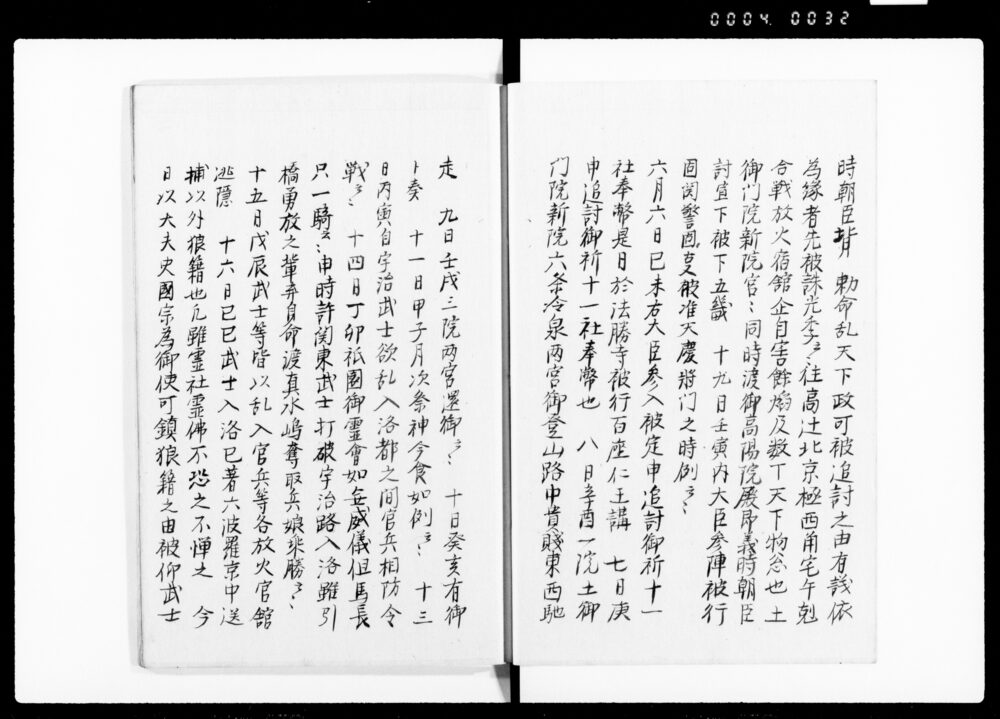 0004 0032
時朝臣背 勅命乱天下政可被追討之由有議依
為縁者先被誅光季云々往高辻北京極西角宅午剋
合戦放火宿舘企自害餘焔及数丁天下物忩也土
御门院新院官々同時渡御高陽院殿即義時朝臣
討宣下被下五畿 十九日壬寅内大臣参陣被行
固関警固支被准天慶将门之時例云々
六月六日己未右大臣参入被定申追討御祈十一
社奉幣是日於法勝寺被行百座仁王講 七日庚
申追討御祈十一社奉幣也 八日辛酉一院土御
门院新院六条冷泉両宮御登山路中貴賤東西馳
走 九日壬戌三院両宮還御云々 十日癸亥有御
卜奏 十一日甲子月次祭神今食如例云々 十三
日丙寅自宇治武士欲乱入洛都之间官兵相防令
戦云々 十四日丁卯祇園御霊會如无威儀但馬長
只一騎云々申時許関東武士打破宇治路入洛雖引
橋勇放之輩弃自命渡真水嶋奪取兵娘乘勝云々
十五日戊辰武士等皆以乱入官兵等各放火官舘
逃隠 十六日己巳武士入洛已著六波羅京中送
捕以外狼籍也凡雖霊社霊佛不恐之不憚之 今
日以大夫史國宗為御使可鎮狼籍之由被仰武士